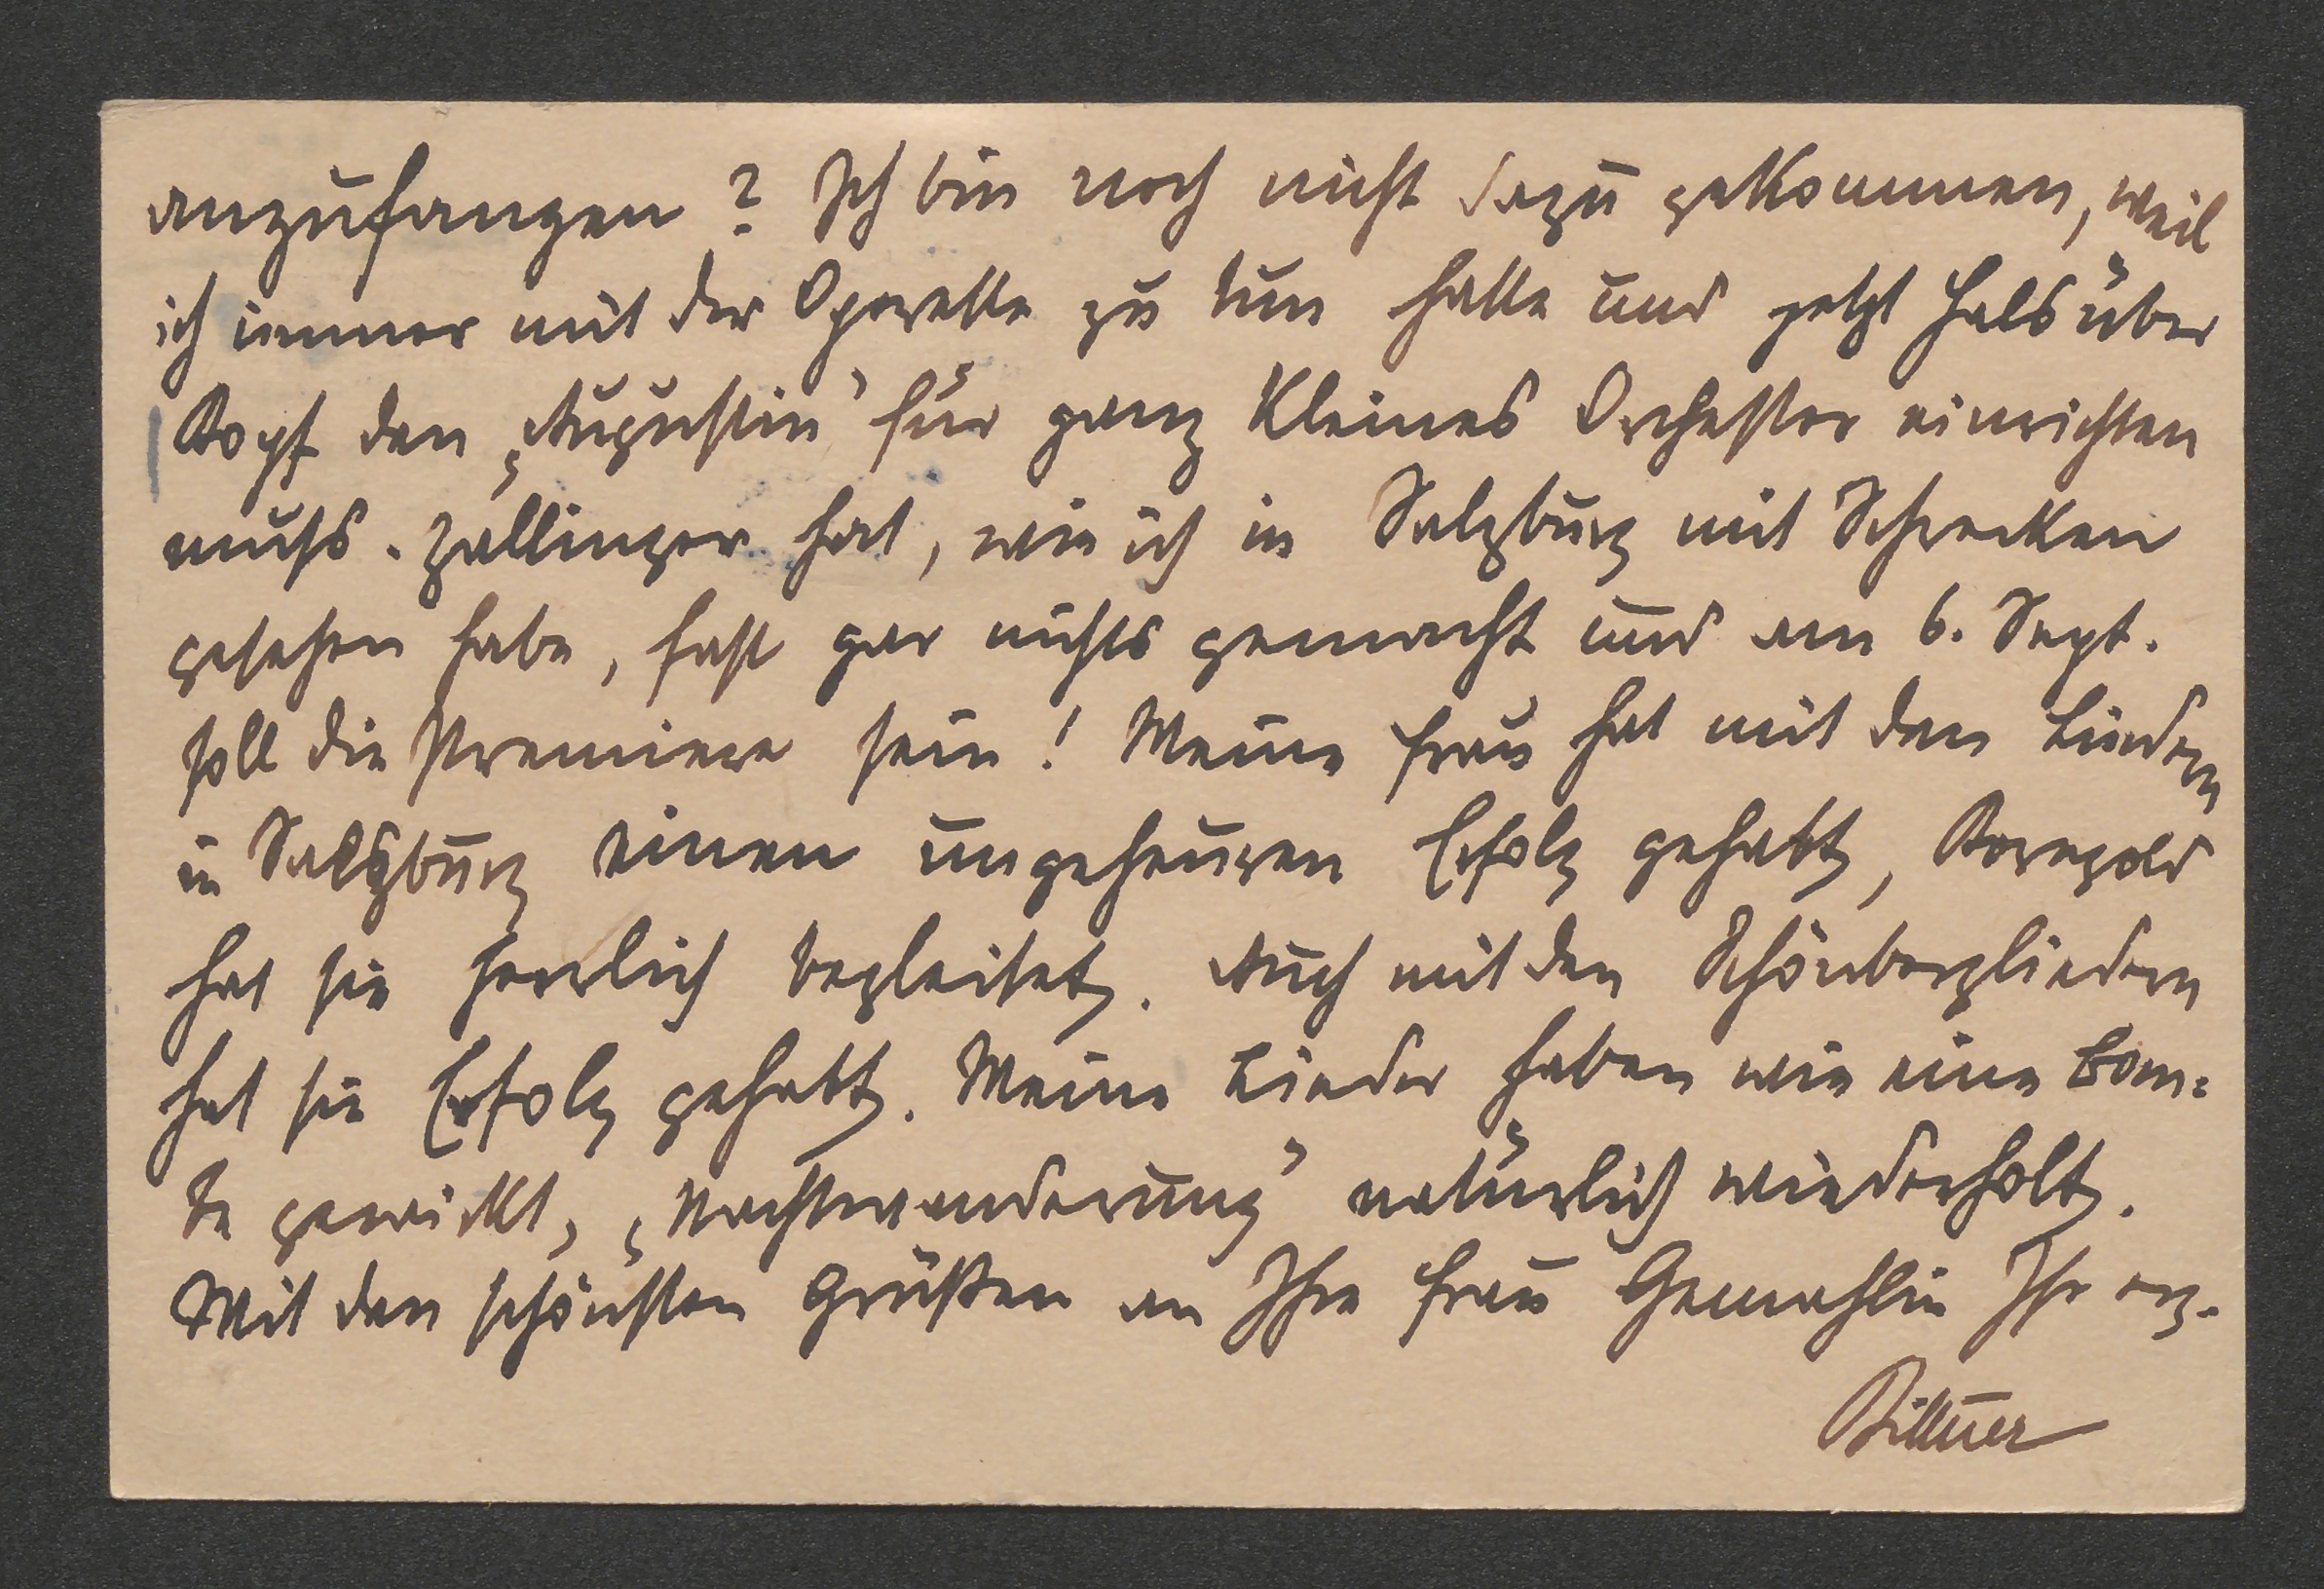 anzufangen? Ich bin noch nicht dazu gekommen, weil
ich immer mit der Operette zu tun hatte und jetzt Hals über
Kopf den „Augustin" für ganz kleines Orchester einrichten
muss. Zallinger hat, wie ich in Salzburg mit Schrecken
gesehen habe, fast gar nichts gemacht und am 6. Sept.
soll die Premiere sein! Meine Frau hat mit den Liedern
in Salzburg einen ungeheuren Erfolg gehabt, Korngold
hat sie herrlich begleitet. Auch mit den Schönbergliedern
hat sie Erfolg gehabt. Meine Lieder haben wie eine Bom=
be gewirkt, „Nachtwanderung" natürlich wiederholt.
Mit den schönsten Grüßen an Ihre Frau Gemahlin Ihr erg.
Bittner